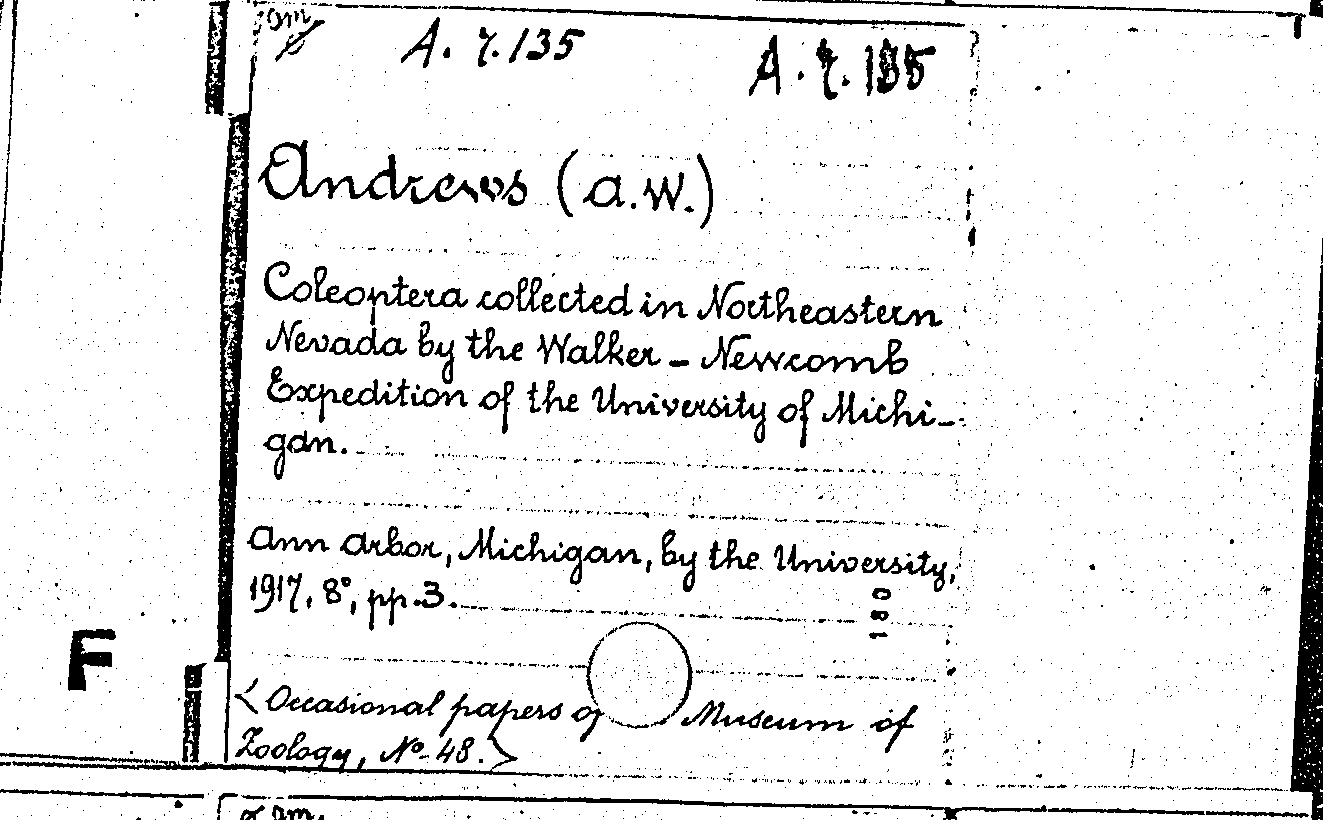 A. 7. 135 A. 7. 135
Andrews (A.W.)
Coleoptera collected in Northeastern
Nevada by the Walker - Newcomb
Expedition of the University of Michi-
gan.
Ann Arbor, Michigan, by the University,
1917, 8°, pp. 3.
180
F
< Occasional papers of Museum of
Zoology, No- 48. >